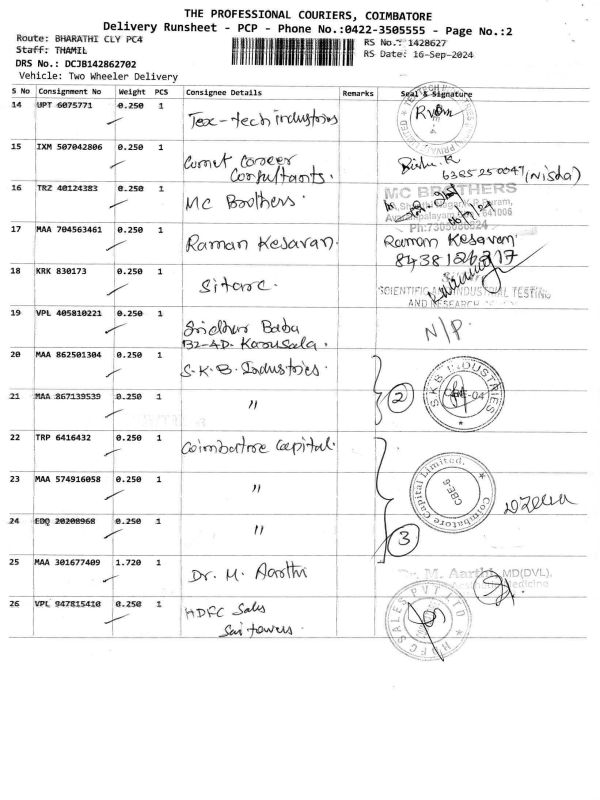 THE PROFESSIONAL COURIERS, COIMBATORE
Delivery Runsheet - PCP - Phone No.:0422-3505555 - Page No.:2
Route: BHARATHI CLY PC4
RS No.: 1428627
Staff: THAMIL
RS Date: 16-Sep-2024
DRS No.: DCJB142862702
Vehicle: Two Wheeler Delivery
S No Consignment No Weight PCS Consignee Details Remarks Seal & Signature
14 UPT 6075771 0.250 1 Tex-tech industries
15 IXM 507042806 0.250 1 Comet Career
Consultants. 6385250047 (Nisha)
16 TRZ 40124383 0.250 1 MC Brothers. MC BROTHERS
641006
Ph:
17 MAA 704563461 0.250 1 Raman Kesavan. Raman Kesavan
18 KRK 830173 0.250 1 Sitarc.
SCIENTIFIC AND INDUSTRIAL TESTING
AND RESEARCH
19 VPL 405810221 0.250 1 Sridhar Babu N/P.
B2-AD. Kousala.
20 MAA 862501304 0.250 1 S.K.B. Industries. S.K.B INDUSTRIES
21 MAA 867139539 0.250 1 " 2
22 TRP 6416432 0.250 1 Coimbatore Capital. Coimbatore Capital Limited.
23 MAA 574916058 0.250 1 " CBE-
24 EDQ 20208968 0.250 1 " 3
25 MAA 301677409 1.720 1 Dr. M. Aarthi Dr. M. Aarthi, MD(DVL),
26 VPL 947815410 0.250 1 HDFC Sales HDFC SALES PVT LTD
Sai towers.